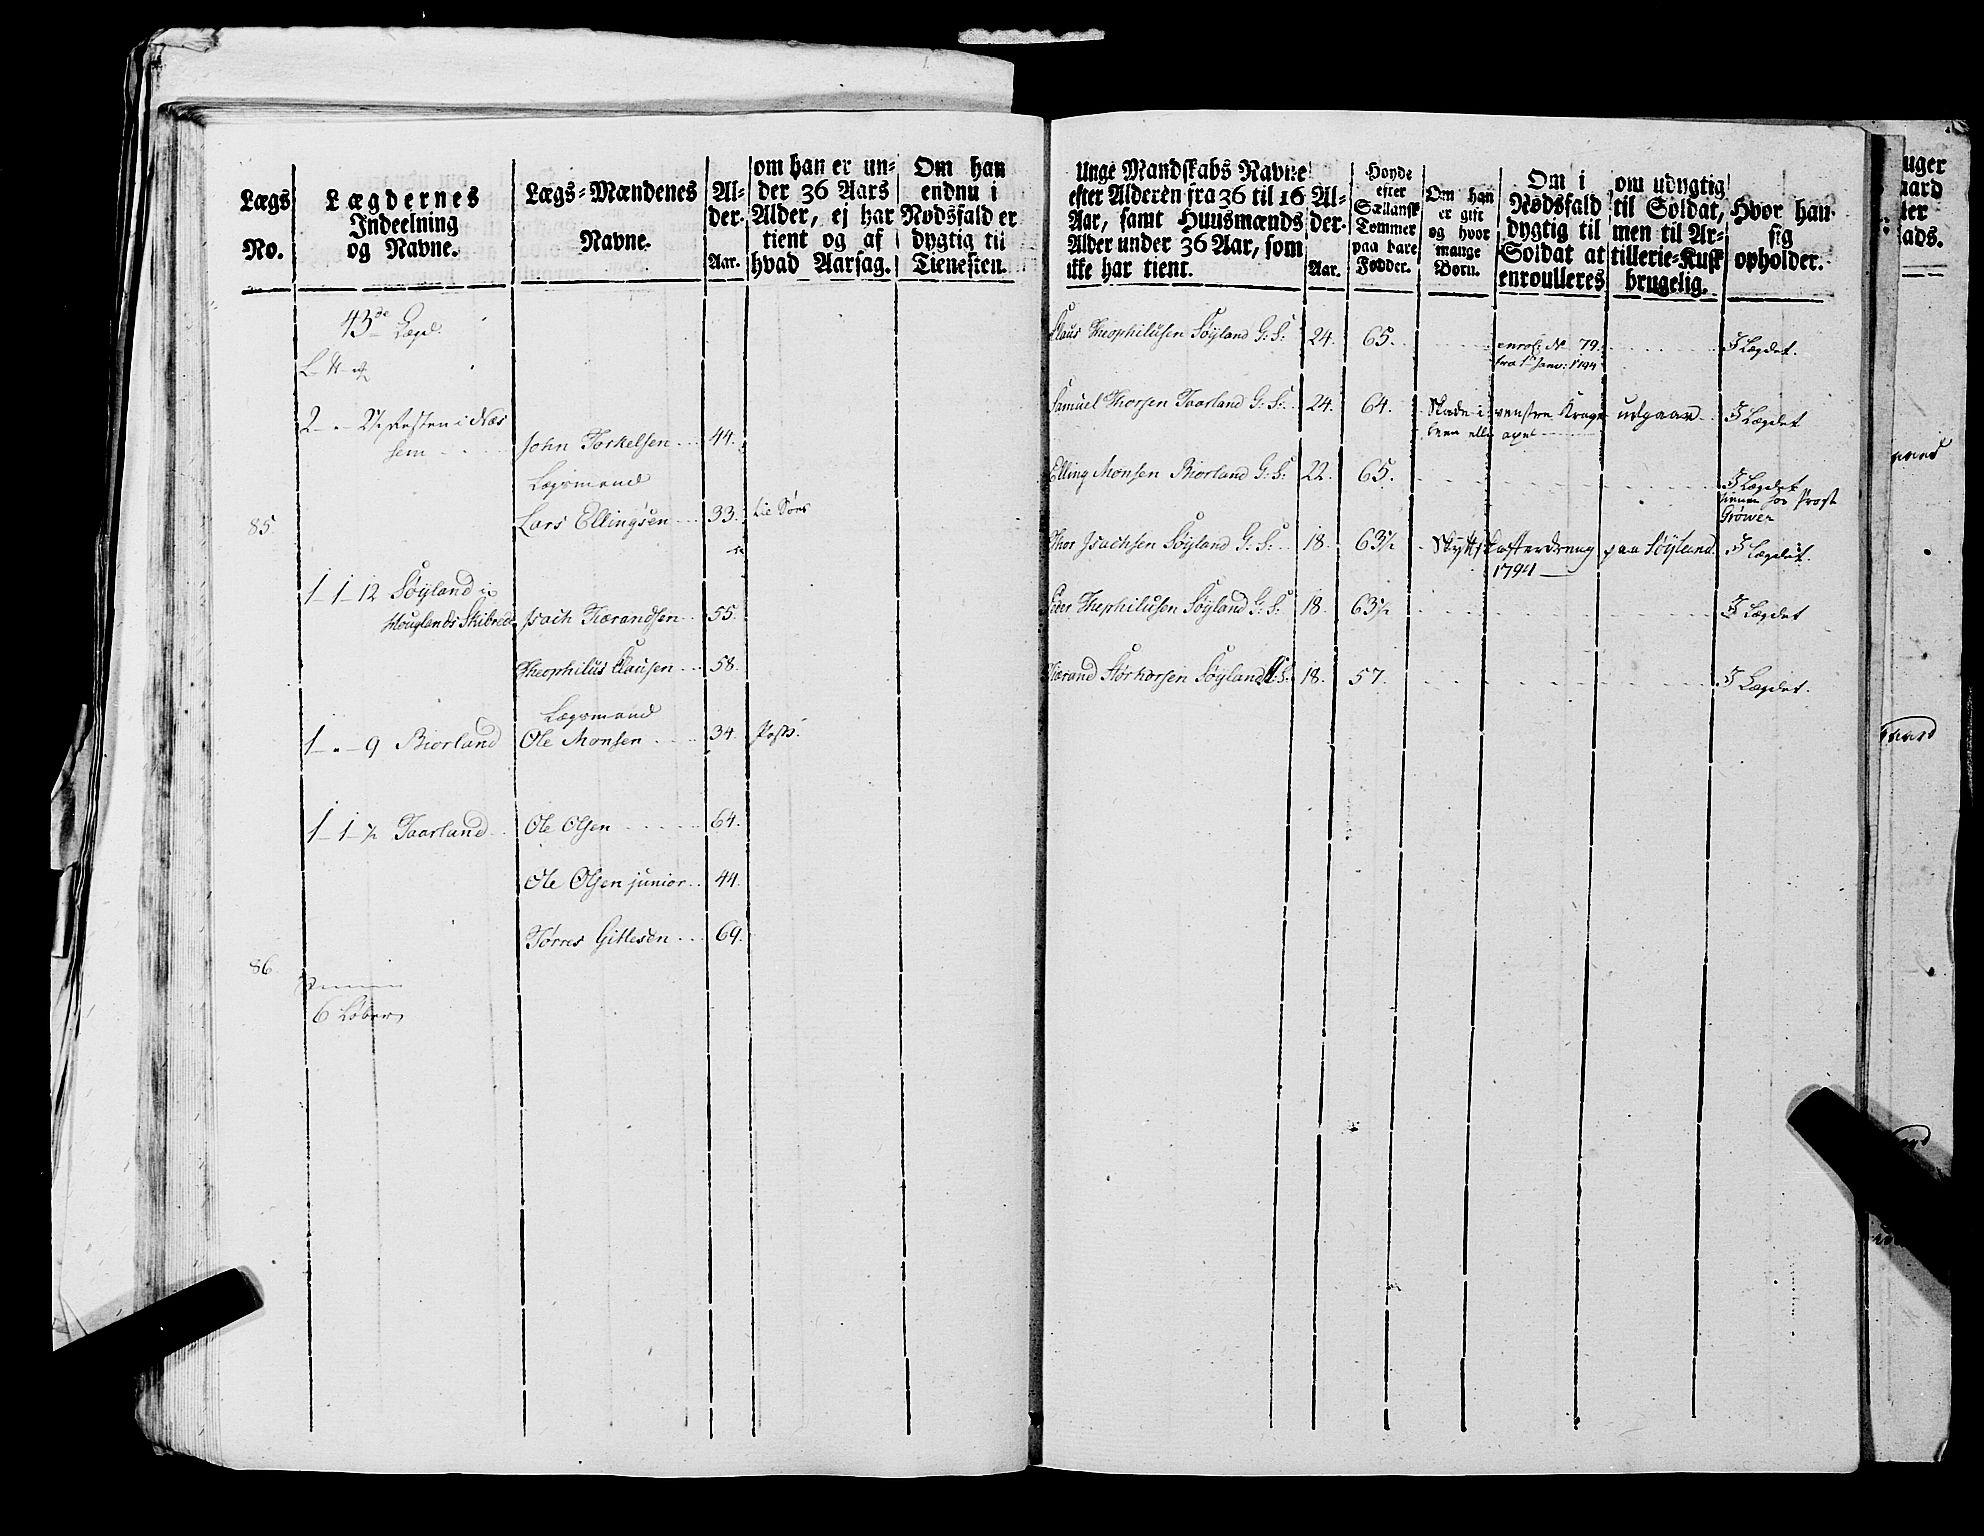 Lægs No.
Lægdernes Indeelning og Navne.
Lægs-Mændenes Navne.
Al-der. Aar.
om han er un-der 36 Aars Alder, ej har tient og af hvad Aarsag.
Om han endnu i Nødsfald er dygtig til Tienesten.
43de Lægd.
2 - " - i Næs
sem
John Torkelsen 44.
Lægsmand
85.
Lars Ellingsen 33.
1 - 1 - 12 Søyland i
Houglands Skibrede
Isach Tiærandsen 55.
Theophilus Clausen 58.
Lægsmand
1 - " - 9 Biorland
Ole Monsen 34.
1 - 1 - ½ Taarland
Ole Olsen 64.
Ole Olsen junior 44.
Tørres Gitlesen 69.
86.
6 Løber
Unge Mandskabs Navne efter Alderen fra 36 til 16 Aar, samt Huusmænds Alder under 36 Aar, som ikke har tient.
Al-der. Aar.
Høyde efter Siællansk Tommer paa bare Fødder.
Om han er gift og hvor mange Børn.
Om i Nødsfald dygtig til Soldat at enroulleres
om udygtig til Soldat, men til Ar-tillerie-Kusk brugelig.
Hvor han sig opholder.
Claus Theophilusen Søyland G: S: 24. 65. enrol: No 79. I Lægdet.
fra 1te Janv: 1794
Samuel Thorsen Taarland G: S: 24. 64. Skade i venstre udgaaer I Lægdet
Elling Monsen Biorland G: S: 22. 65. I Lægdet
tiener hos Provst
Grøwer
Thor Isachsen Søyland G: S: 18. 63½ paa Søyland. I Lægdet.
1794
Peder Thephilusen Søyland G: S: 18. 63½ I Lægdet
Tiærand Størkorsen Søyland G: S: 18. 57. I Lægdet.